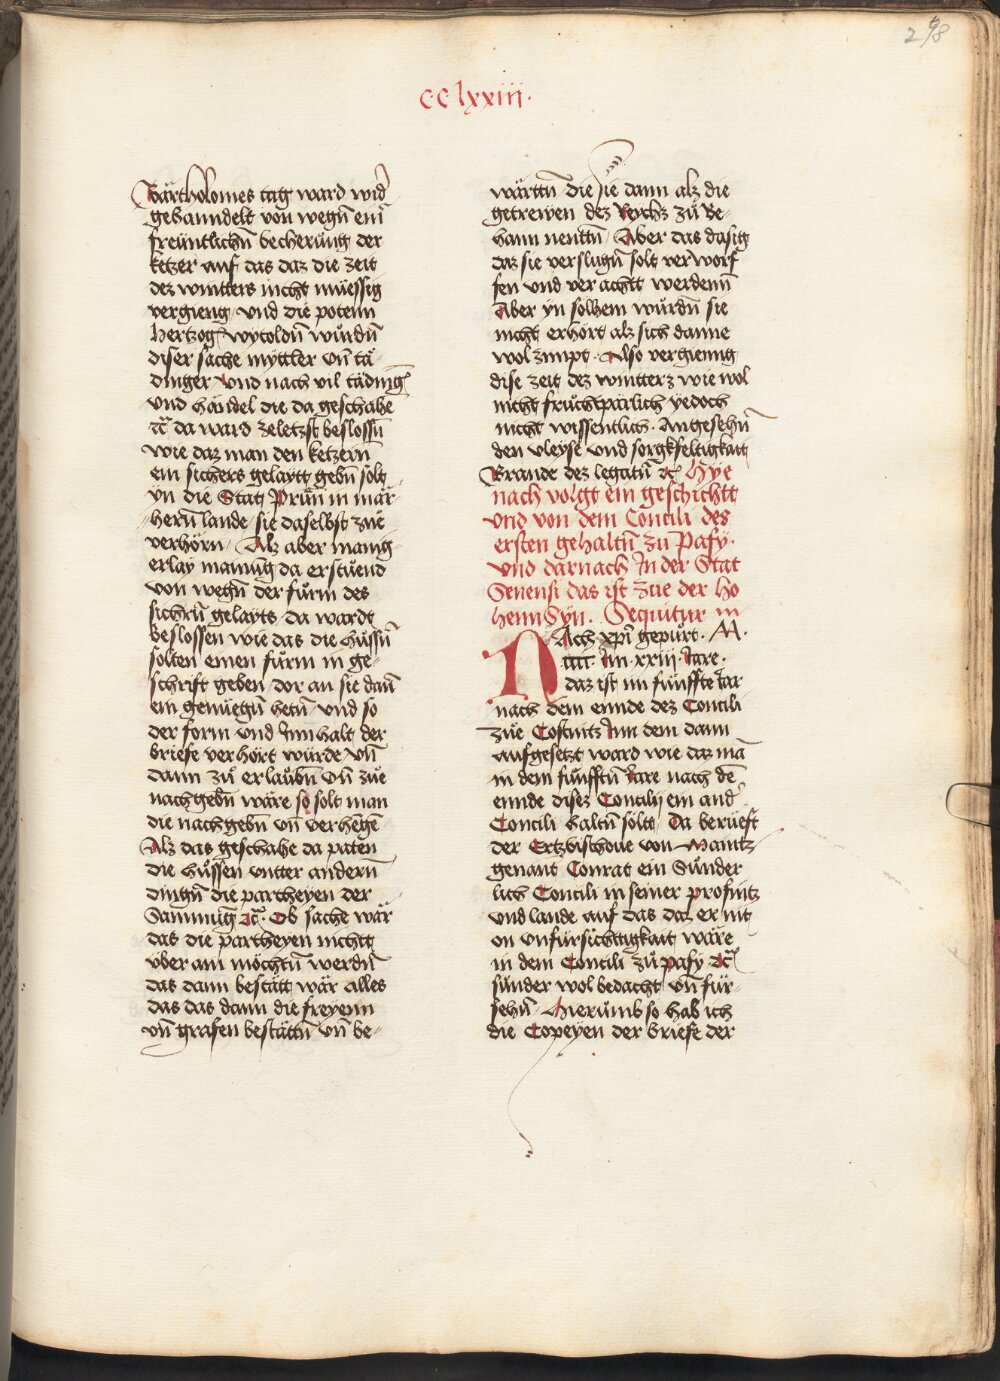 298
cclxxiii·
Bärtholomes tag ward wid̄
gehanndelt von wegn̄ einˀ
freüntlichn̄ becherüng der
ketzer auf das daz die zeit
dez wintters nicht müessig
vergieng · und die potenn
Hertzog wytoldn̄ würdn̄
diser sache myttler vn̄ tä-
dinger Und nach vil täding
und händel die da geschahe
ꝛc̄ da ward zeletzst beslossn̄
wie daz man den ketzern
ein sichers gelaytt gebn̄ solt
yn die Stat Prün in mär-
hern lande sie daselbst zue
verhörn · Alz aber manig-
erlay mainūg da erstüend
von wegn̄ der fürm des
sichrn̄ gelayts da wardt
beslossen wie das die hüssn̄
solten einen fürm in ge-
schrift geben / dor an sie dan̄
ein genüegn̄ hetn̄ und so
der form und Innhalt der
briefe verhört würde vn̄
dann zü erlaübn̄ vn̄ züe
nachgebn̄ wäre so solt man
die nachgebn̄ vn̄ verhēgē
Alz das geschahe da paten
die hüssen untter andern̄
dingn̄ die partheyen der
Sammūg ꝛc̄ Ob sache wär
das die partheyen nichtt
über ain möchtn̄ werdn̄
das dann bestätt wär alles
das das dann die freyenn
vn̄ grafen bestättn̄ vn̄ be-
wärttn̄ die sie dann alz die
getrewen dez Reychz zü Be-
hann nentn̄ Aber das dasig
daz sie verslugn̄ solt verworf
fen und verachtt werdenn
Aber yn solhem würdn̄ sie
nicht erhört alz sich danne
wol zimpt · Also vergienng
dise zeit dez wintterz wie wol
nicht früchtpärlich yedoch
nicht wissentlich · Angesehn̄
den vleyse und sorgkfeltigkait
Brande dez legatn̄ ꝛc̄ Hye
nach volgt ein geschichtt
und von dem Concili des
ersten gehaltn̄ zü Pafy·
und darnach In der Stat
Senensi das ist züe der Ho
henn Syn. Sequitur in
NAch xp̄i gepürt · M·
cccc · Im · xxiii · Iare ·
daz ist im fünffte Iar
nach dem ennde dez Concili
züe Costnitz Inn dem dann
aufgesetzt ward wie daz mā
in dem fünfftn̄ Iare nach dē
ennde disez Concilij ein and̄
Concili haltn̄ söltt Da berüeft
der Ertzbischoue von Maintz
genant Conrat ein Sünder
lich Concili in seiner profintz
und lande auf das daz er nit
on unfürsichttigkait wäre
in dem Concili zü pafy ꝛc̄
sünder wol bedacht vn̄ für-
sehn̄ · Hierümb so hab ich
die Copeyen der briefe der